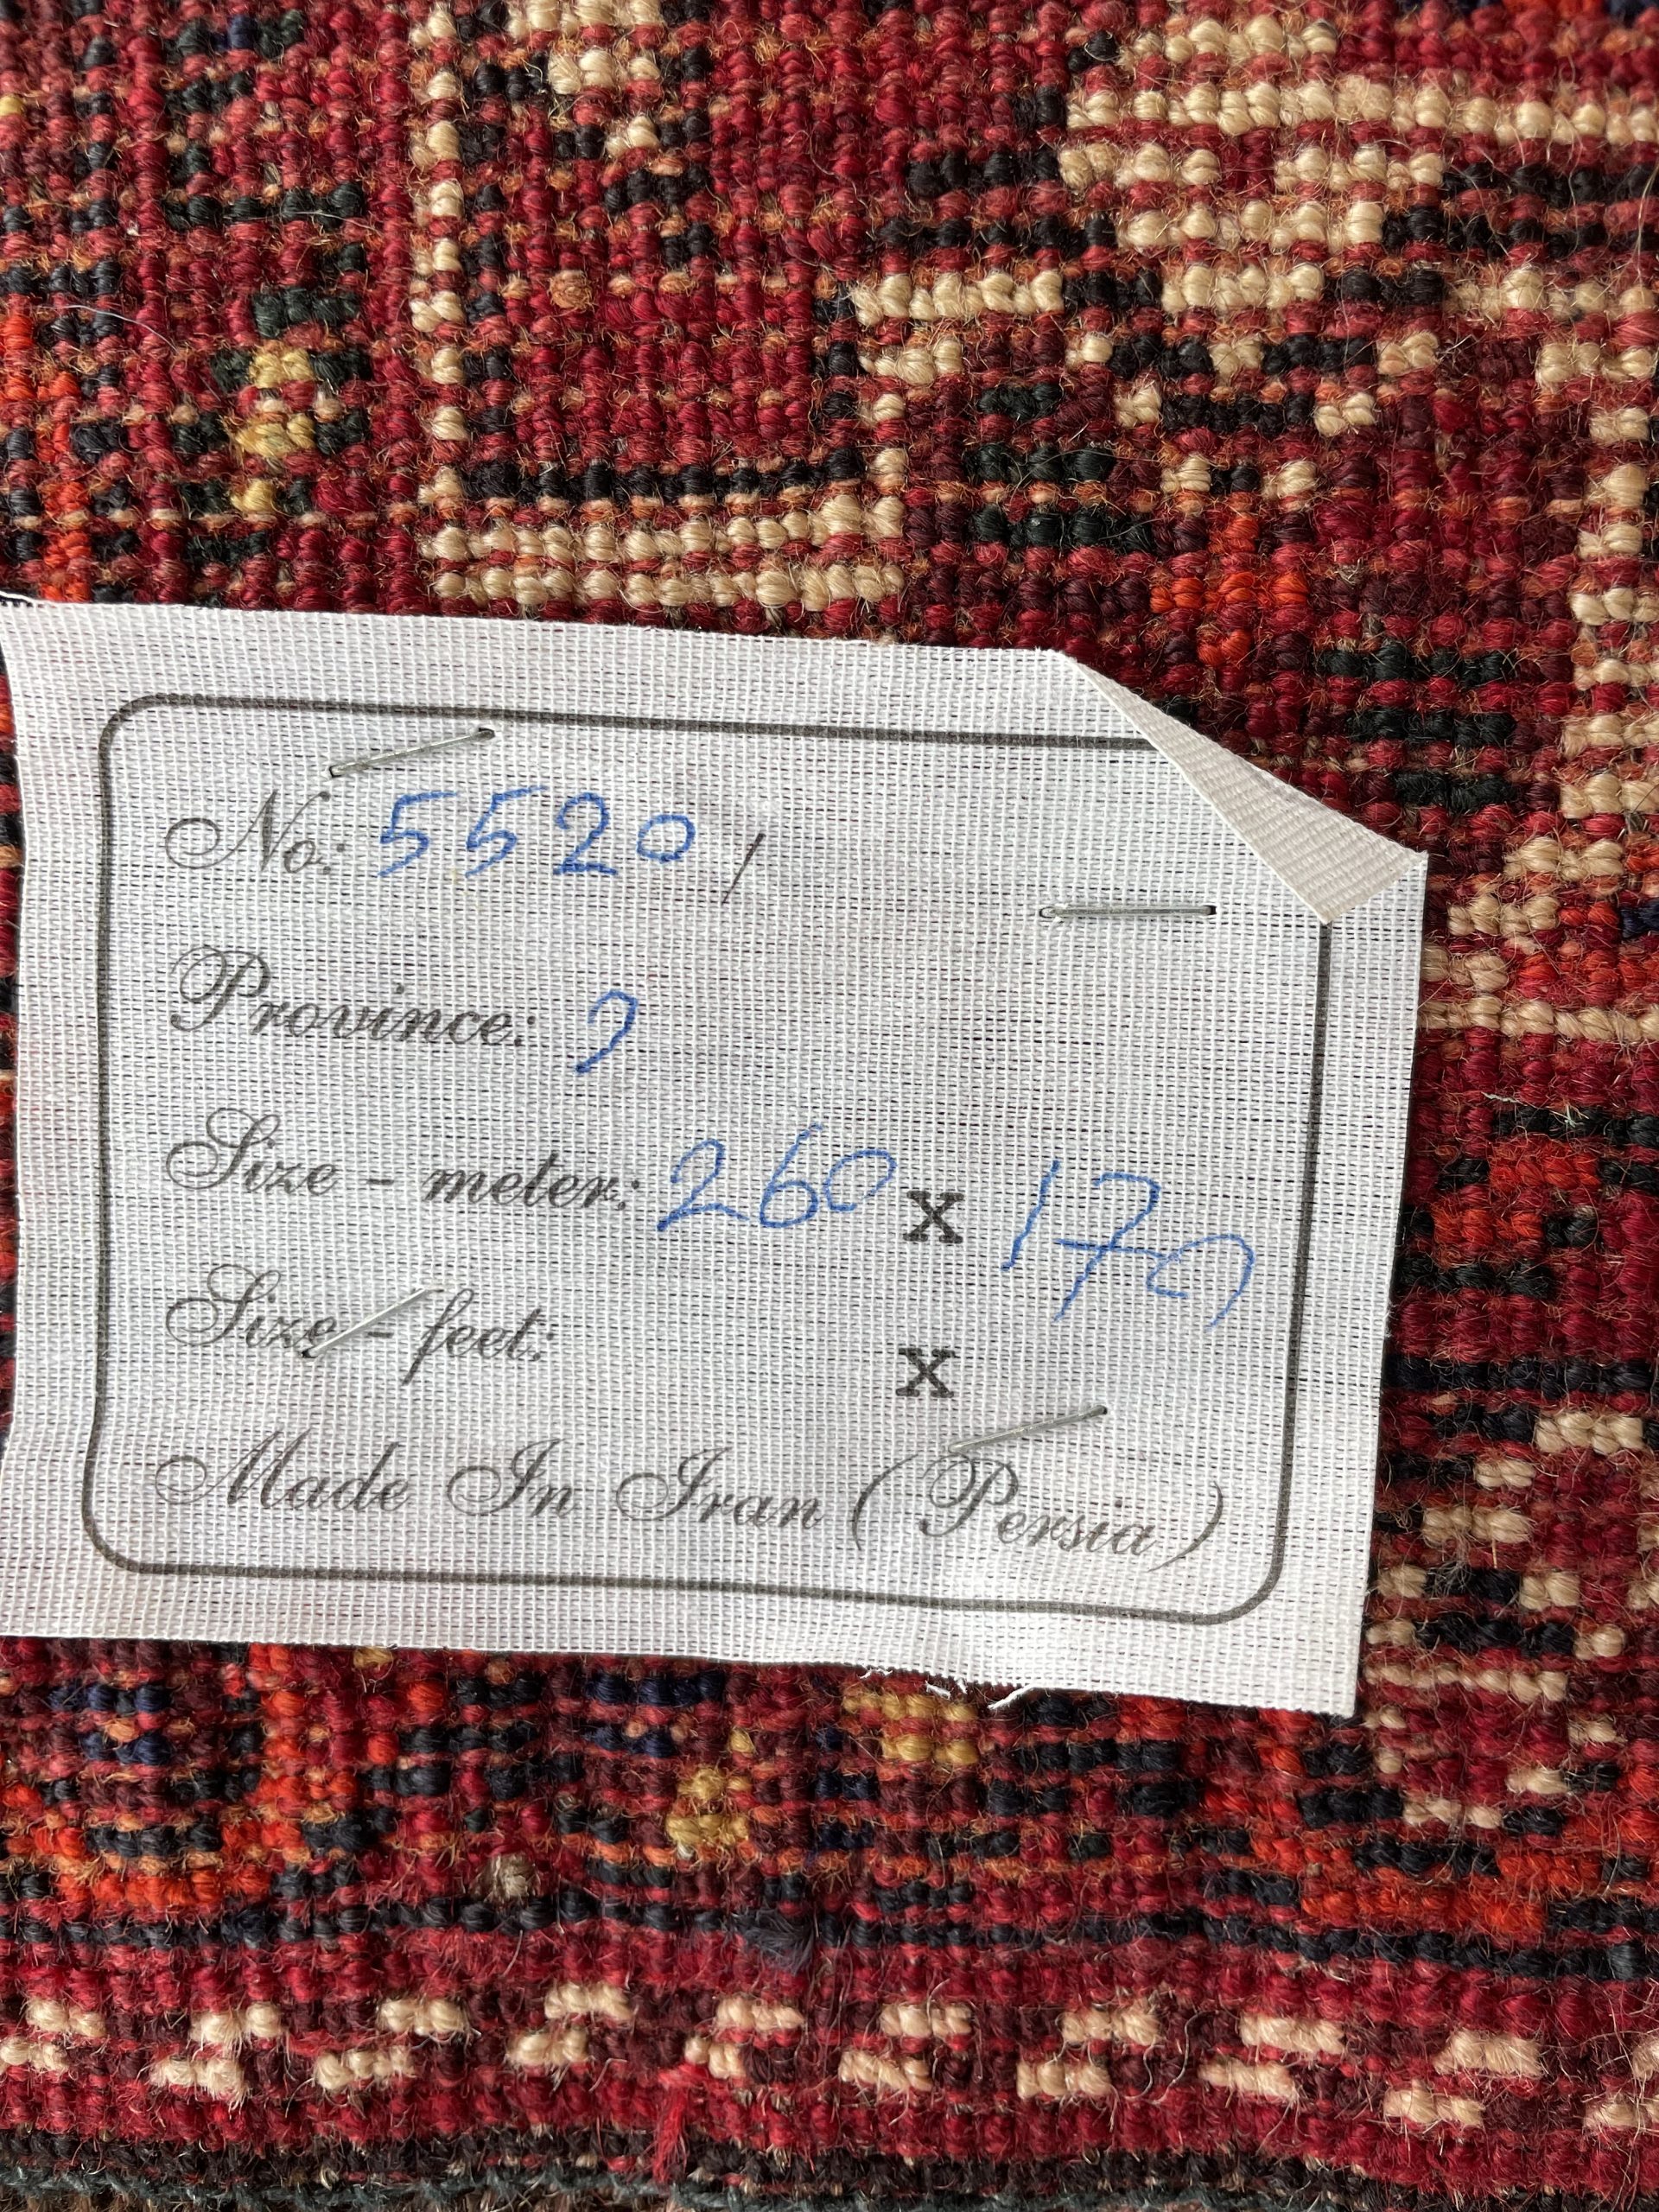 No: 5520 /
Province: ?
Size - meter: 260 x 179
Size - feet: x
Made In Iran (Persia)